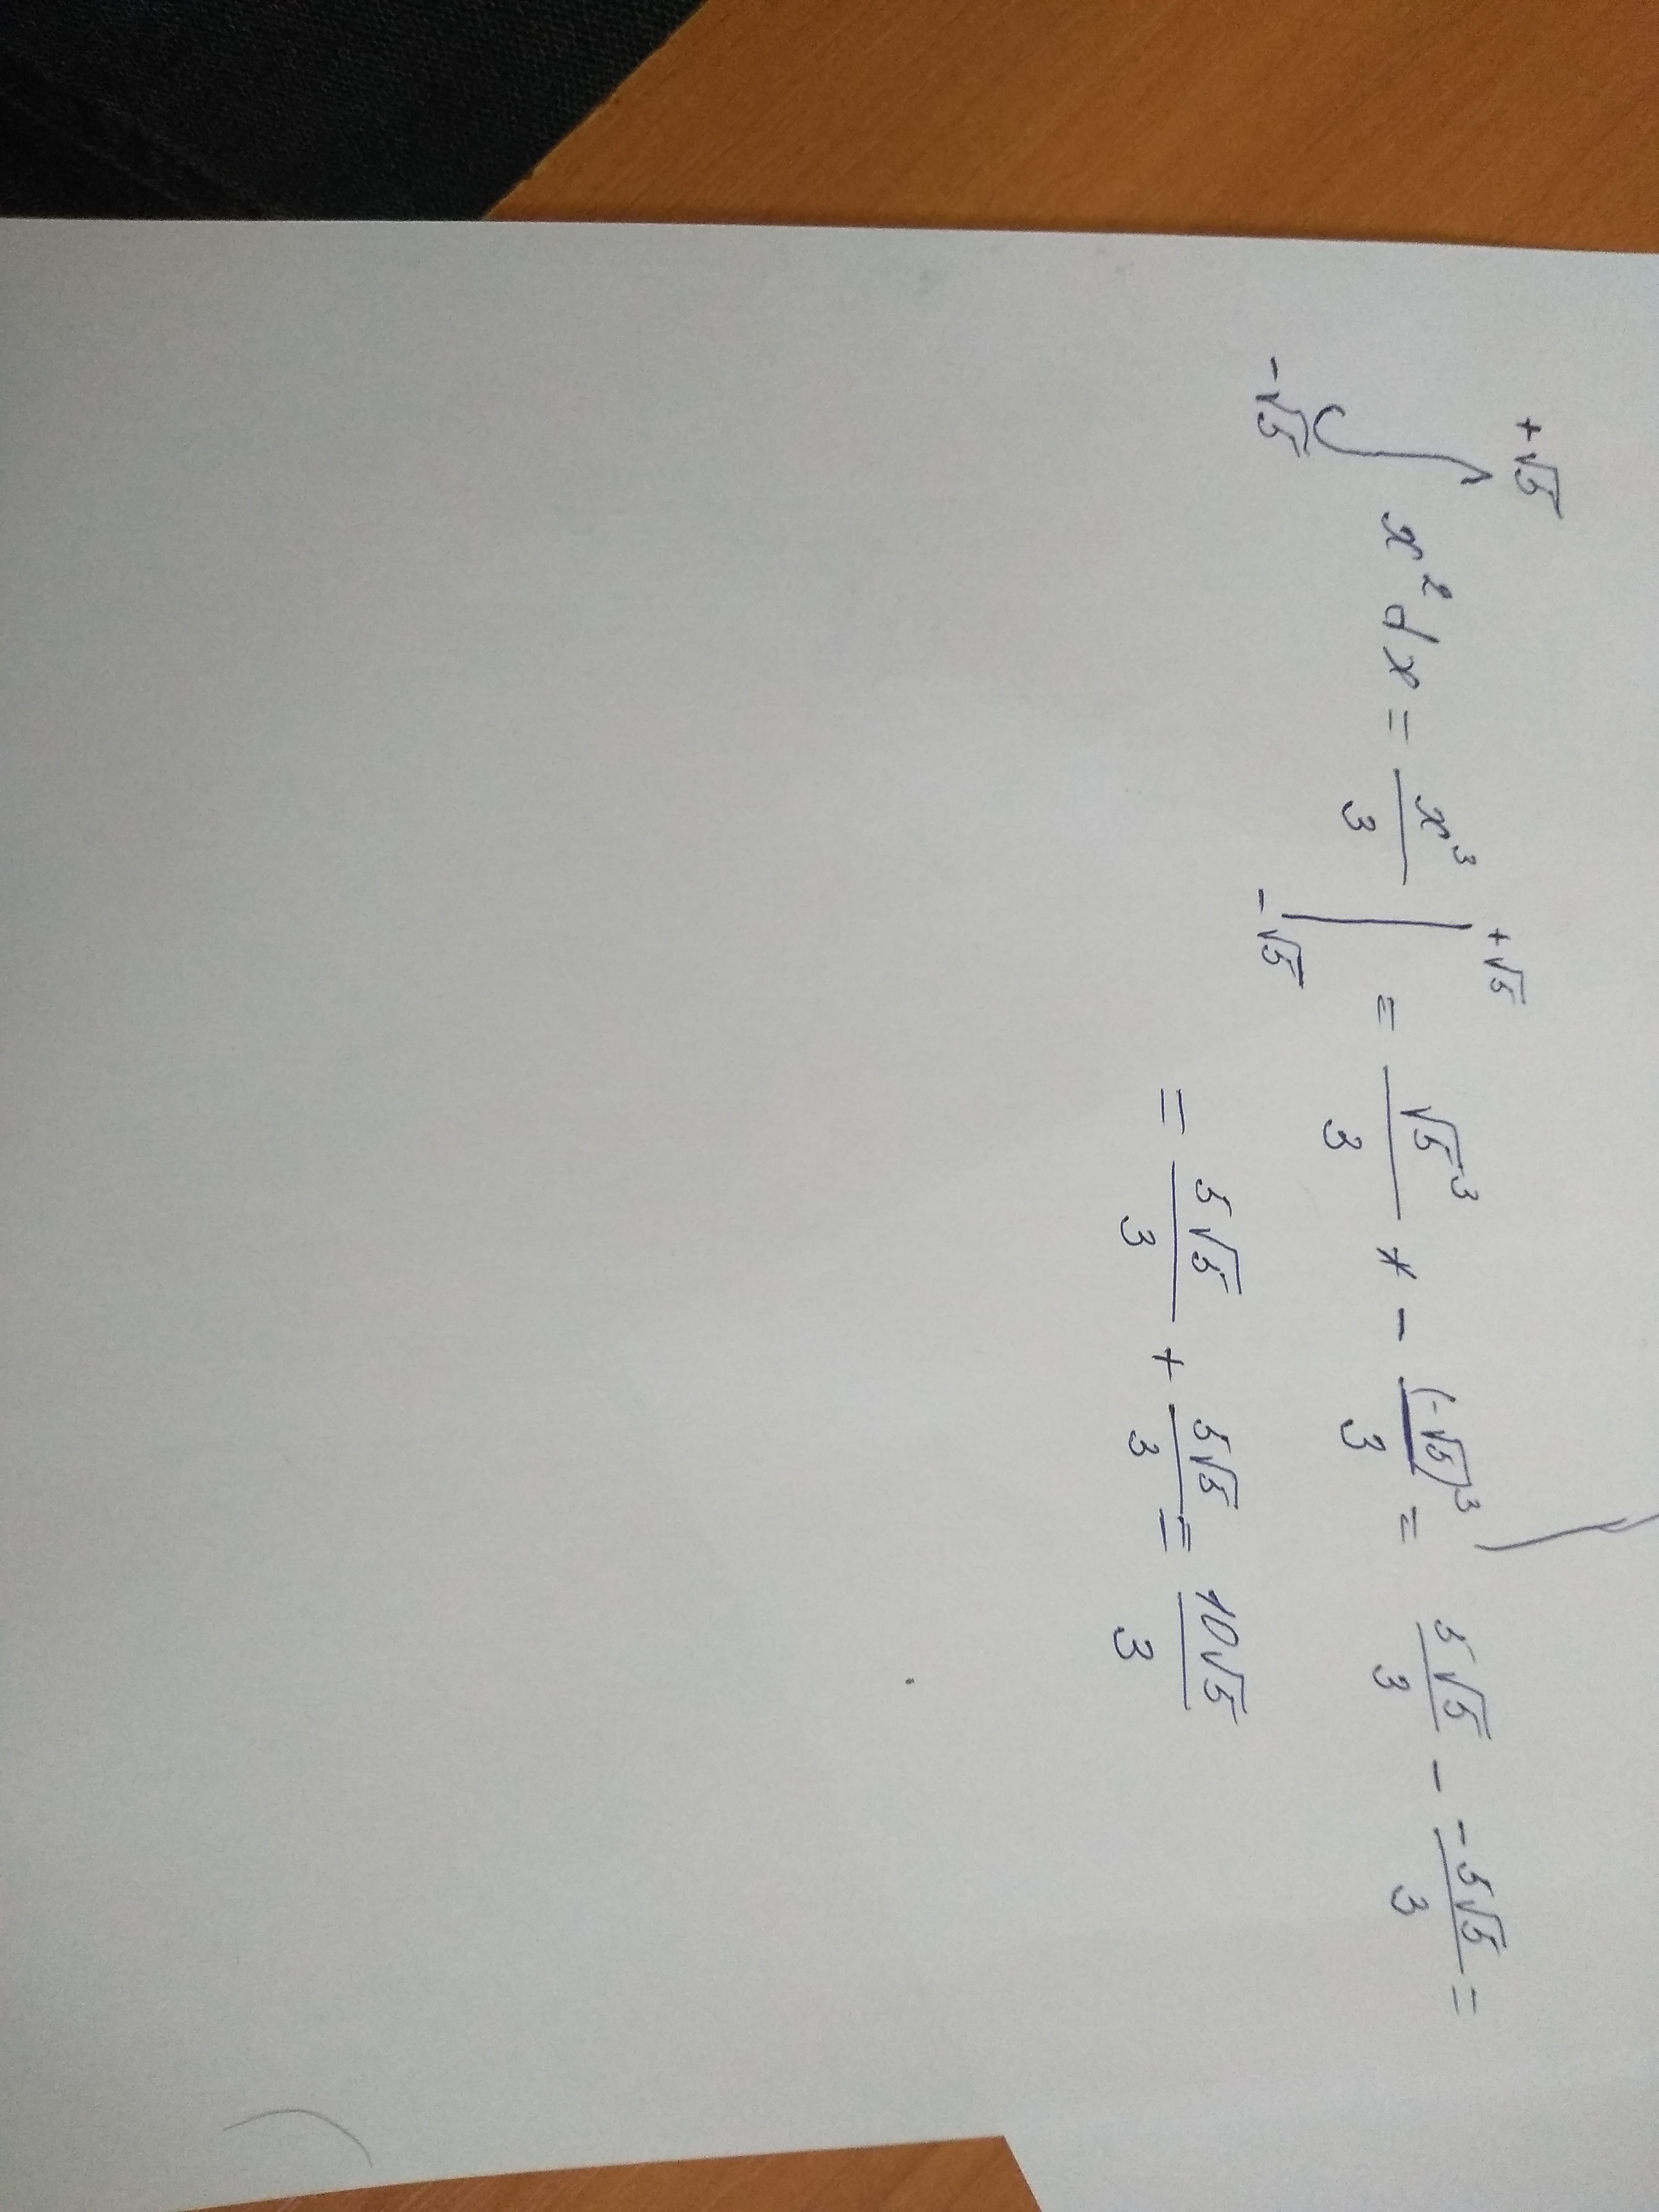 ∫_{-√5}^{+√5} x² dx = x³/3 |_{-√5}^{+√5} = √5³/3 * - (-√5)³/3 = 5√5/3 - -5√5/3 =
= 5√5/3 + 5√5/3 = 10√5/3